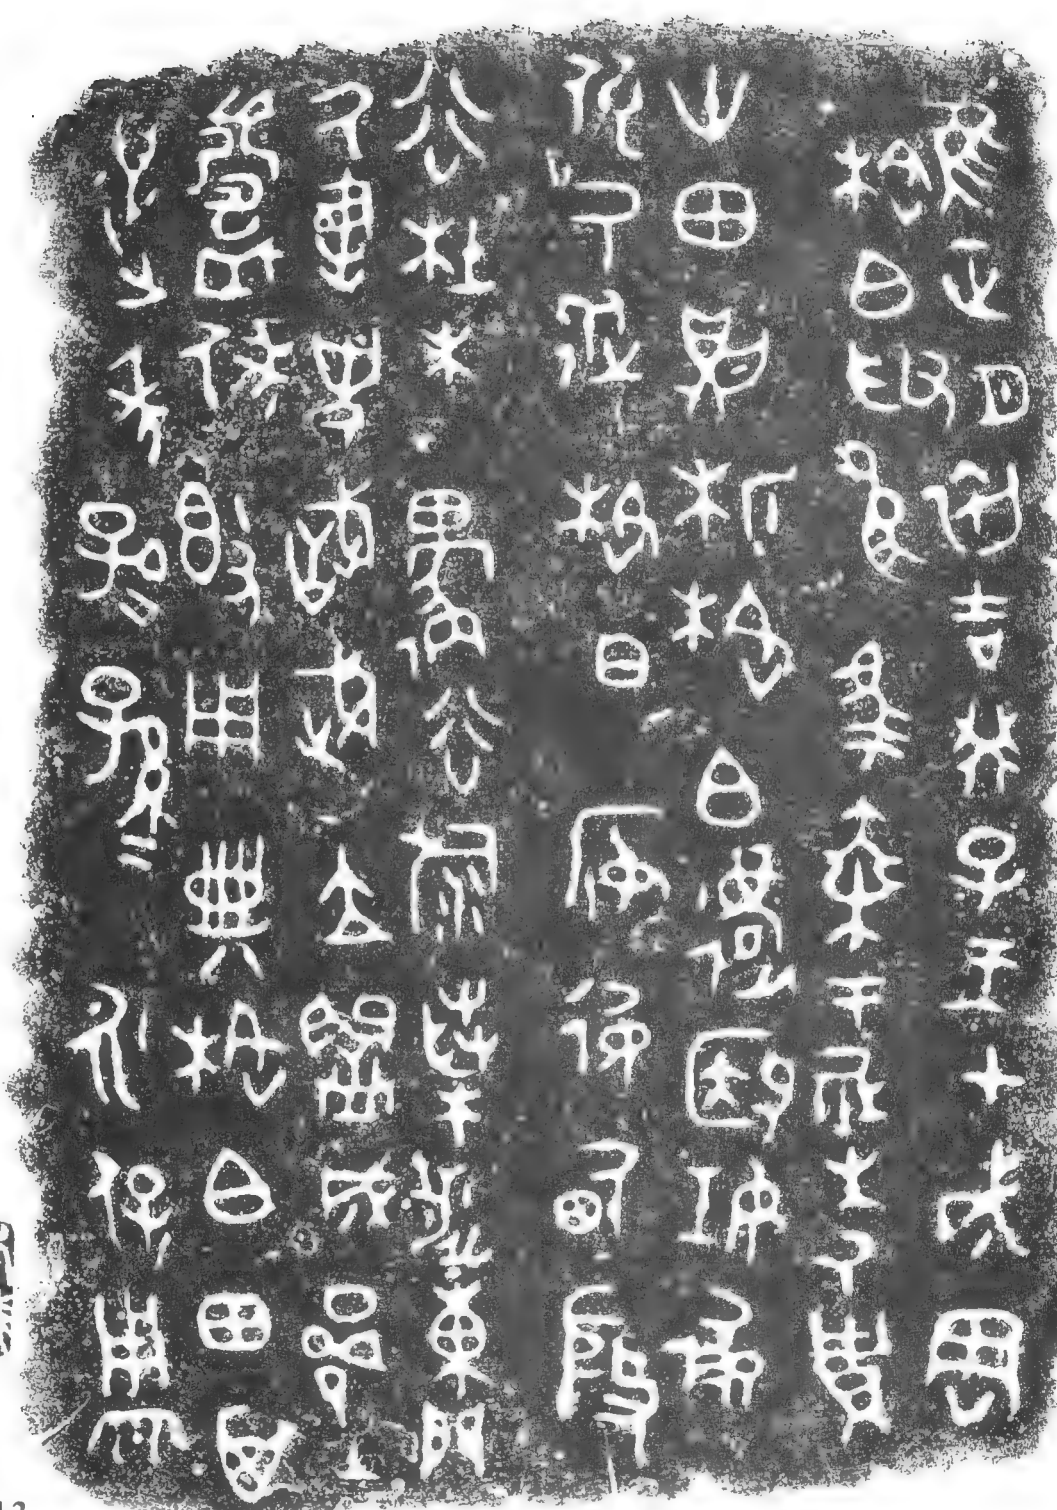 隹正月初吉癸巳王才成周
格白取良馬乘于倗生氒貯
卅田則析格白殹妊彶
氒從格白安彶甸殷
谷杜木邍谷旅桑涉東門
氒書史戠武立盨成
鑄保簋用典格白田其
邁年子=孫=永保用